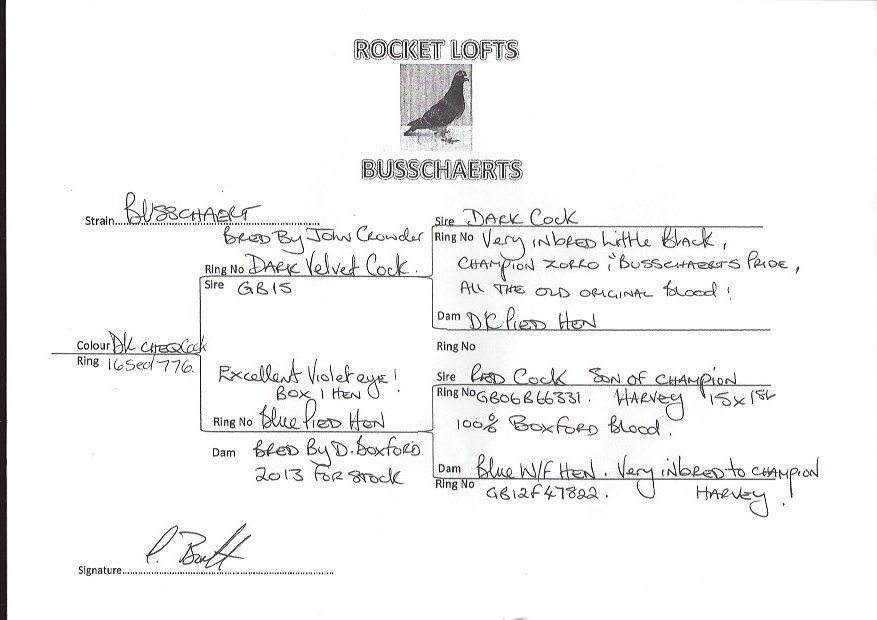 ROCKET LOFTS
BUSSCHAERTS
Strain BUSSCHAERT
Bred By John Crowder
Ring No DARK Velvet Cock.
Sire GB15
Sire DARK Cock
Ring No Very INBRED Little Black,
CHAMPION ZORRO, "BUSSCHAERTS PRIDE,
ALL THE OLD ORIGINAL Blood!
Dam DK PIED HEN
Ring No
Colour DK CHEQ Cock
Ring 16Sed 776.
Excellent Violet eye!
BOX 1 HEN
Ring No Blue PIED HEN
Dam BRED By D. BOXFORD
2013 FOR STOCK
Sire RED Cock SON OF CHAMPION
Ring No GB06B66331. HARVEY 15x1st
100% BOXFORD Blood.
Dam Blue W/F HEN. Very inbred to CHAMPION
Ring No GB12F47822. HARVEY!
Signature